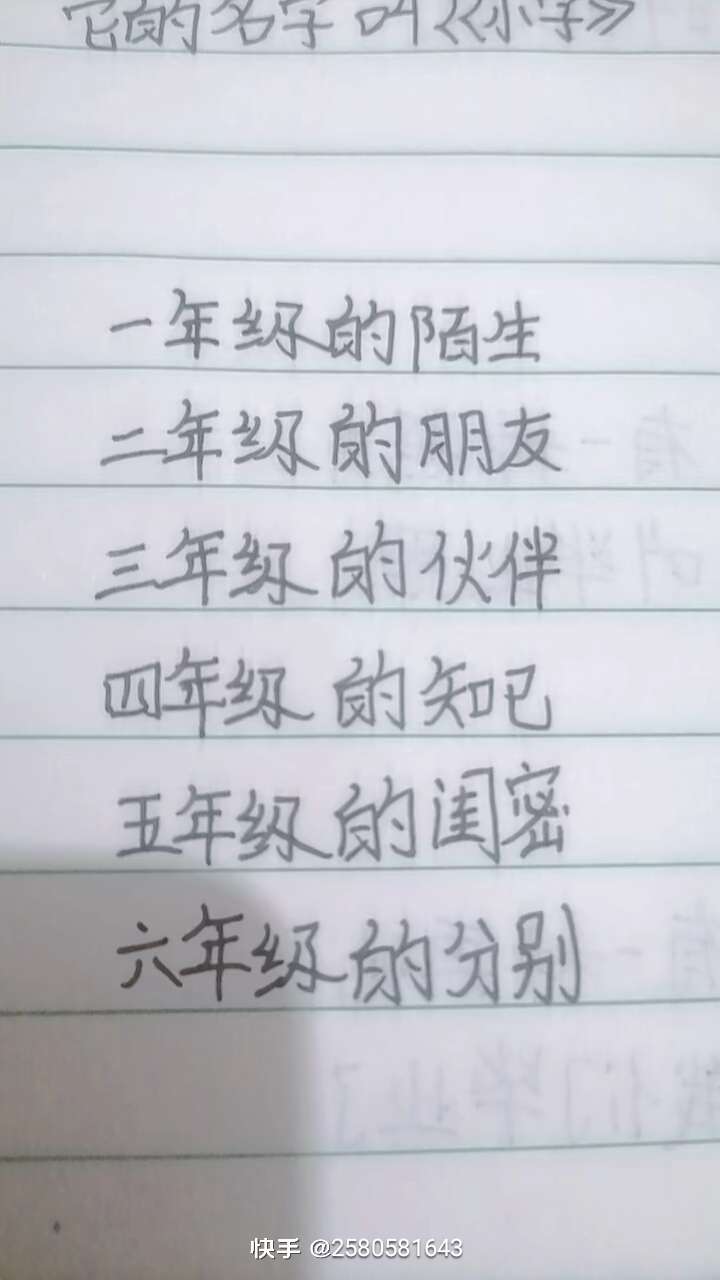 它的名字叫《小学》
一年级的陌生
二年级的朋友
三年级的伙伴
四年级的知己
五年级的闺密
六年级的分别
快手 @2580581643